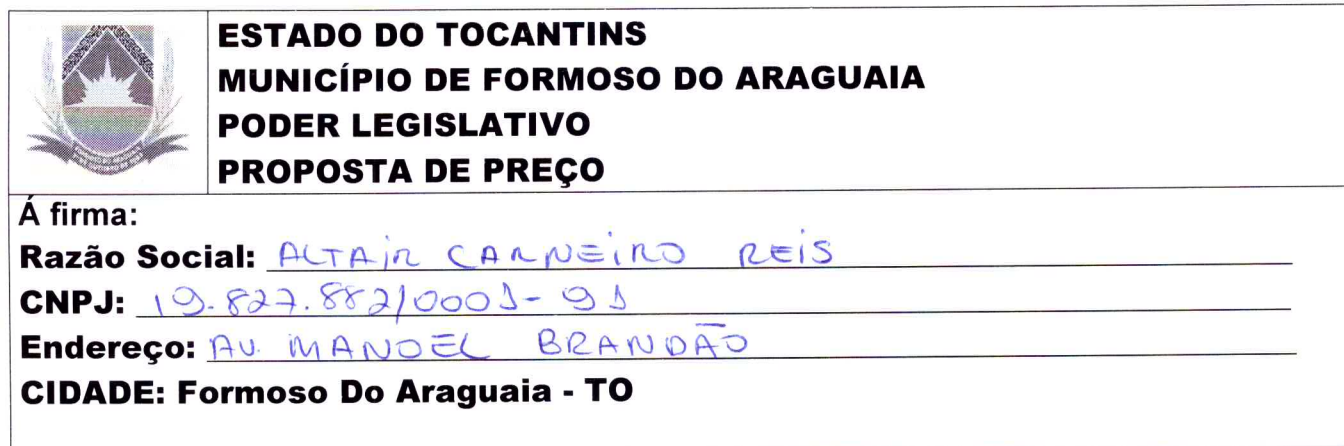 ESTADO DO TOCANTINS
MUNICÍPIO DE FORMOSO DO ARAGUAIA
PODER LEGISLATIVO
PROPOSTA DE PREÇO
Á firma:
Razão Social: ALTAIR CARNEIRO REIS
CNPJ: 19.827.882/0001-91
Endereço: AV. MANOEL BRANDÃO
CIDADE: Formoso Do Araguaia - TO